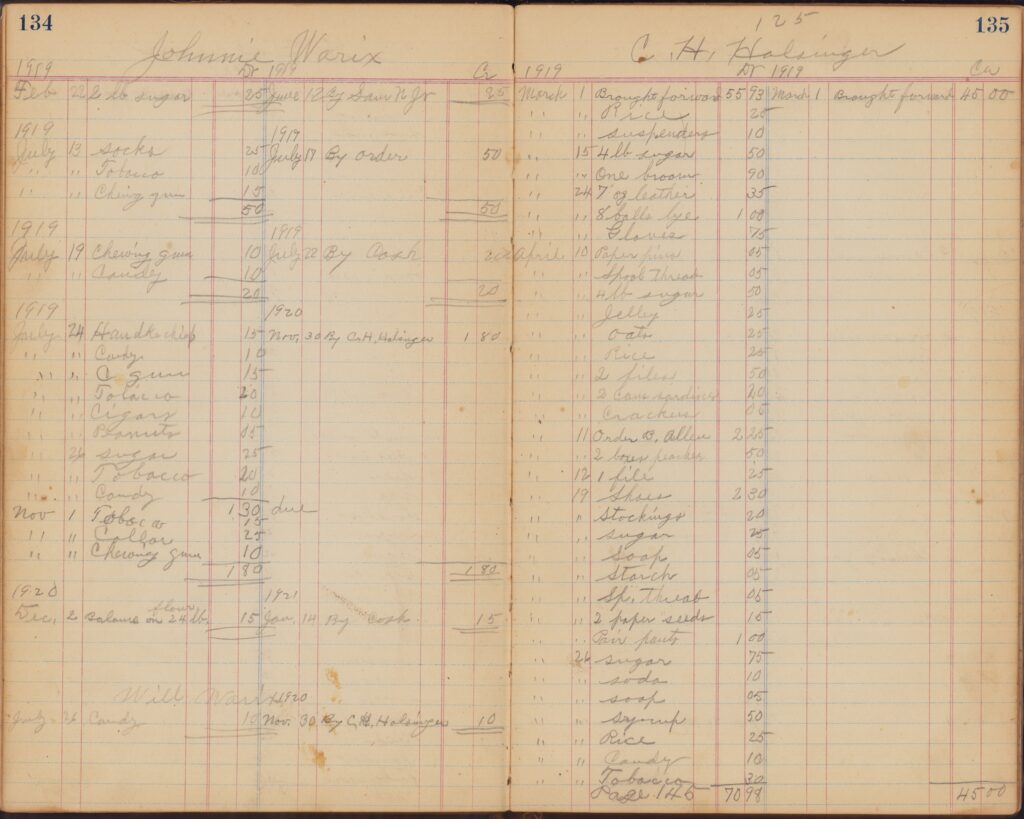 134
Johnnie Warix
1919 Dr 1919 Cr
Feb 22 2 lb sugar 25 June 12 By Sam N Jr 25
1919 1919
July 13 Socks 25 July 17 By order 50
" " Tobacco 10
" " Chewing gum 15
50 50
1919 1919
July 19 Chewing gum 10 July 22 By Cash 20
" " Candy 10
20 20
1919 1920
July 24 Handkechief 15 Nov. 30 By C.H. Holsinger 1 80
" " Candy 10
" " C gum 15
" " Tobacco 20
" " Cigars 10
" " Peanuts 05
" 26 sugar 25
" " Tobacco 20
" " Candy 10
1 30 due
Nov 1 Tobacco 15
" " Collar 25
" " Chewing gum 10
1 80 1 80
1920 1921
Dec. 2 balance on flour 24 lb. 15 Jan. 14 By cash 15
Will Warix 1920
July 26 Candy 10 Nov. 30 By C.H. Holsinger 10
125
135
C. H. Holsinger
1919 Dr 1919 Cr
March 1 Brought forward 55 93 March 1 Brought forward 45 00
" " Rice 25
" " suspenders 10
" 15 4 lb sugar 50
" " One broom 90
" 24 7 oz leather 35
" " 8 balls lye 1 00
" " Gloves 75
April 10 Paper pins 05
" " Spool thread 05
" " 4 lb sugar 50
" " Jelly 25
" " oats 25
" " Rice 25
" " 2 files 50
" " 2 cans sardines 20
" " Crackers 05
" 11 Order B. Allen 2 25
" " 2 boxes peaches 50
" 12 1 file 25
" 19 Shoes 2 30
" " Stockings 20
" " sugar 25
" " Soap 05
" " Starch 05
" " Sp. thread 05
" " 2 paper seeds 15
" " Pair pants 1 00
" 26 sugar 75
" " soda 10
" " soap 05
" " syrup 50
" " Rice 25
" " Candy 10
" " Tobacco 30
Page 145 70 98 45 00